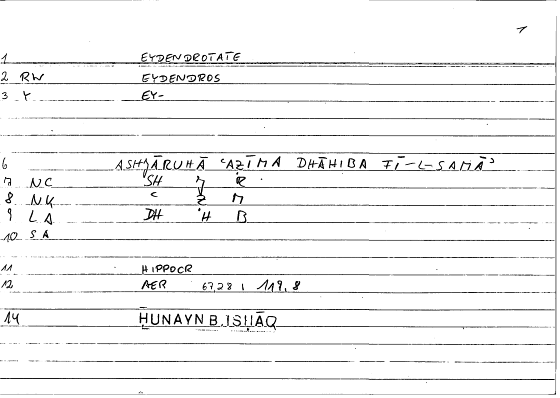 1
1 EYDENDROTATE
2 RW EYDENDROS
3 Y EY-
6 ASHJĀRUHĀ ʿAẒĪMA DHĀHIBA FĪ-L-SAMĀʾ
7 NC SH J R
8 NK ʿ Ẓ M
9 LA DH H B
10 SA
11 HIPPOCR
12 AER 67,28 ; 119,8
14 ḤUNAYN B.ISḤĀQ